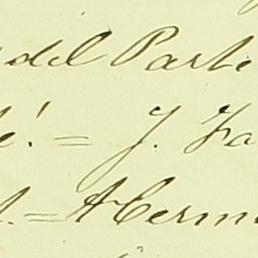 del Parte
é! = J. Fa
l. = A Cerm